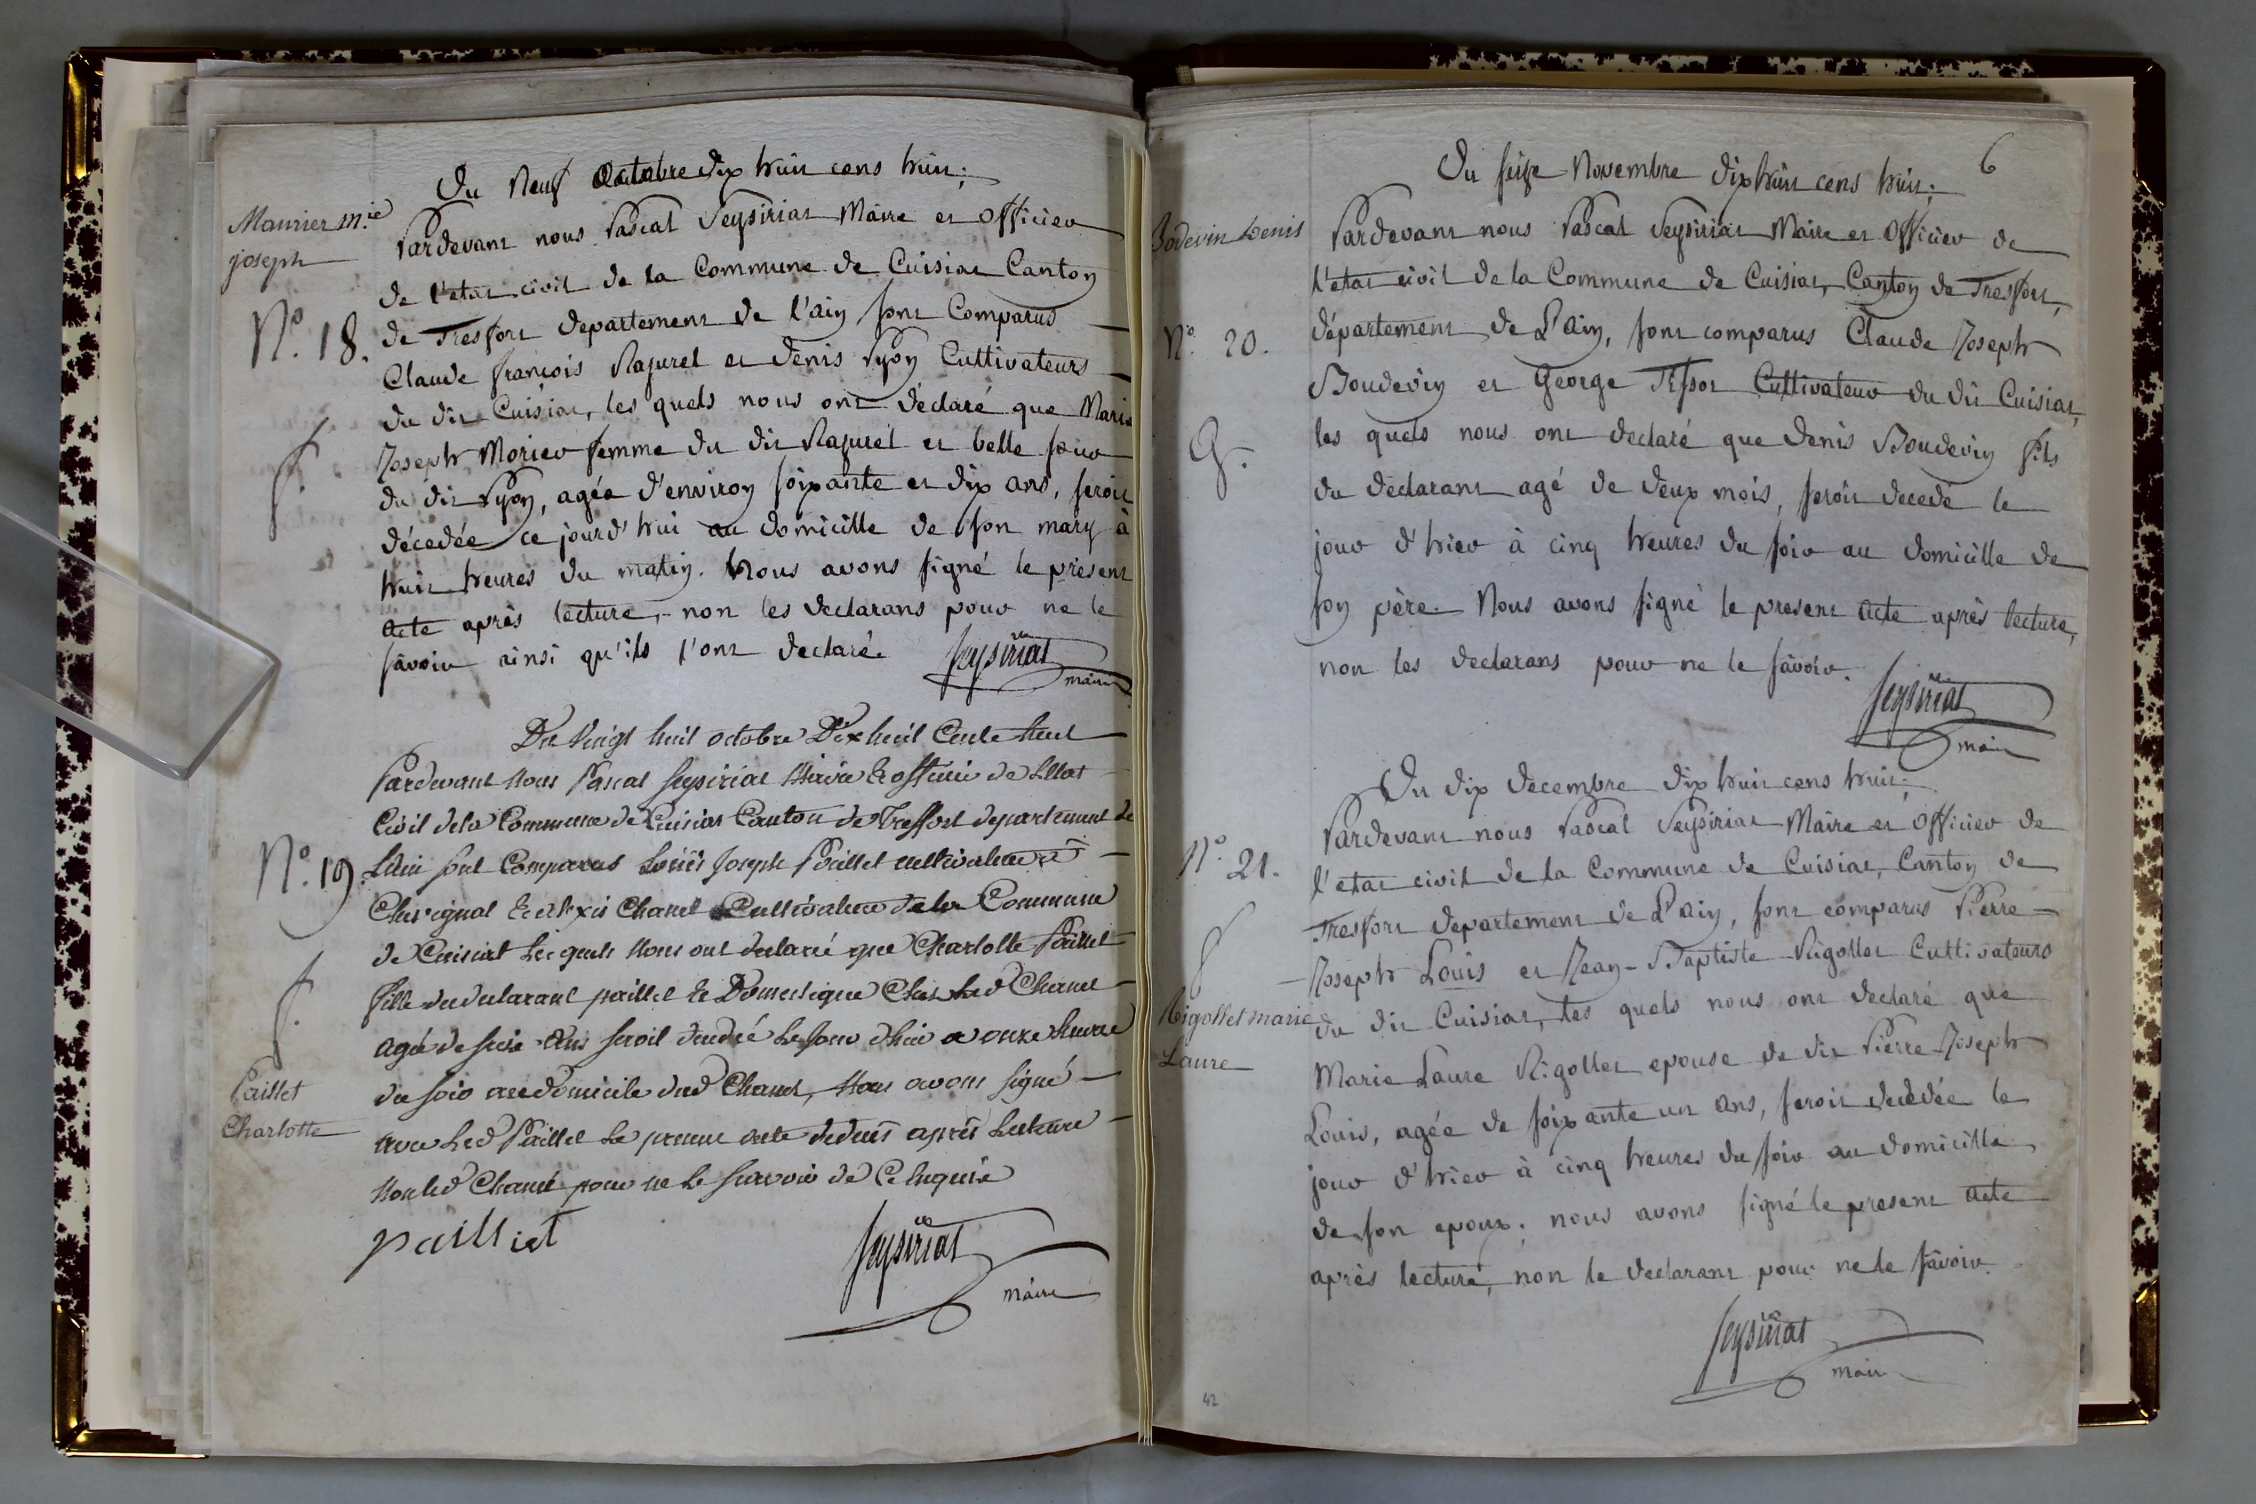 Du Neuf Octobre dix huit cens huit;
Maurier m.ie
joseph
Pardevant nous Pascal Seysiriat Maire et Officier
de l'etat civil de la Commune de Cuisiat Canton
N.º 18.
de Tresfort departement de l'ain sont Comparus
Claude françois Rajurel et denis Pyon Cultivateurs
du dit Cuisiat, les quels nous ont déclaré que Marie
f.
Joseph Morier femme du dit Rajurel et belle sœur
du dit Pyon, agée d'environ soixante et dix ans, seroit
décedée ce jourd'hui au domicille de son mary à
huit heures du matin. Nous avons signé le présent
acte après lecture, non les declarans pour ne le
sâvoir ainsi qu'ils l'ont declaré.
Seysiriat
maire
Du Vingt huit octobre Dix huit Cents huit
Pardevant Nous Pascal Seysiriat Maire Et officier de L'Etat
Civil de la Commune de Cuisiat Canton de Treffort departement de
N.º 19.
L'ain sont Comparus Louis Joseph Paillet cultivateur à
Chevignat Et alexis Chanel Cultivateur de la Commune
de Cuisiat Lesquels Nous ont declaré que Charlotte Paillet
f.
fille du declarant paillet Et Domestique Chez Led Chanel
agée de seize ans seroit decedé Le jour d'hier a onze heure
Paillet
Charlotte
du soir au domicile dud Chanel, Nous avons signé
avec Led Paillet Le present acte dedeces après Lecture
Non led Chanel pour ne Le scavoir de Ce Enquis
pailliet
Seysiriat
maire
6
Du seize Novembre dix huit cens huit;
Bodevin Denis
Pardevant nous Pascal Seysiriat Maire et Officier de
l'etat civil de la Commune de Cuisiat, Canton de Tresfort,
N.º 20.
département de L'Ain, sont comparus Claude Joseph
Boudevin et George Tissot Cultivateur du dit Cuisiat,
G.
les quels nous ont declaré que Denis Boudevin fils
du déclarant agé de deux mois, seroit decedé le
jour d'hier à cinq heures du soir au domicille de
son père. Nous avons signé le present acte après lecture,
non les declarans pour ne le sâvoir.
Seysiriat
maire
Du dix decembre dix huit cens huit;
Pardevant nous Pascal Seysiriat Maire et Officier de
N.º 21.
l'etat civil de la Commune de Cuisiat, Canton de
f
Tresfort departement de L'ain, sont comparus Pierre
Joseph Louis et Jean-Baptiste Rigollet Cultivateurs
Rigollet marie
Laure
du dit Cuisiat, les quels nous ont declaré que
Marie Laure Rigollet epouse de dit Pierre Joseph
Louis, agée de soixante un ans, seroit decedée le
jour d'hier à cinq heures du soir au domicille
de son epoux; nous avons signé le present acte
après lecture, non le declarant pour ne le sâvoir.
Seysiriat
maire
42